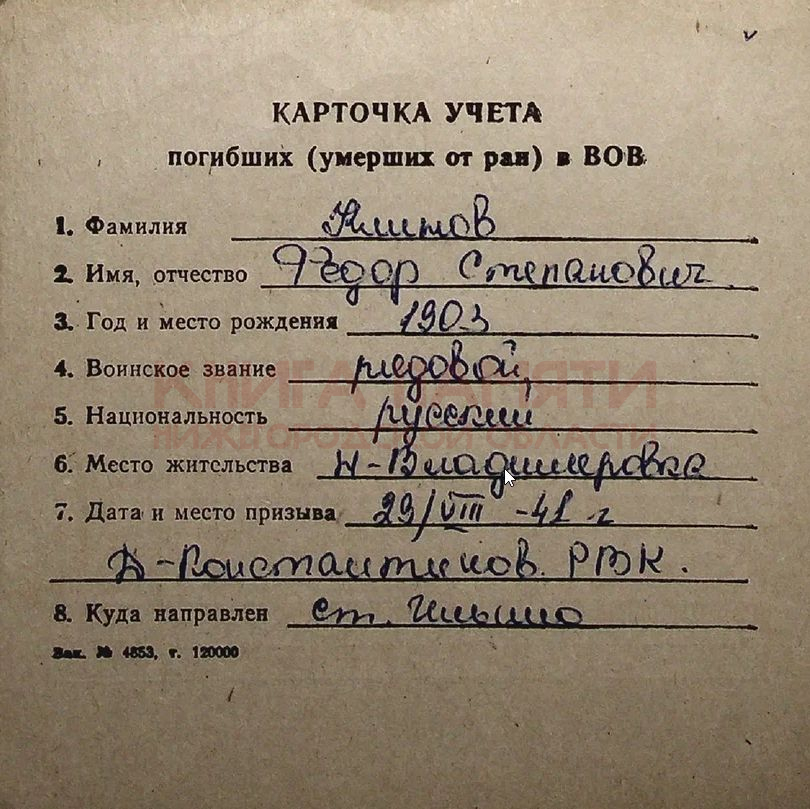 КАРТОЧКА УЧЕТА
погибших (умерших от ран) в ВОВ
1. Фамилия Климов
2. Имя, отчество Фёдор Степанович
3. Год и место рождения 1903
4. Воинское звание рядовой,
5. Национальность русский
КНИГА ПАМЯТИ
НИЖЕГОРОДСКОЙ ОБЛАСТИ
6. Место жительства Н-Владимеровка
7. Дата и место призыва 29/VIII -41 г
Д-Константинов. РВК.
8. Куда направлен ст. Ильино
Зак. № 4853, т. 120000